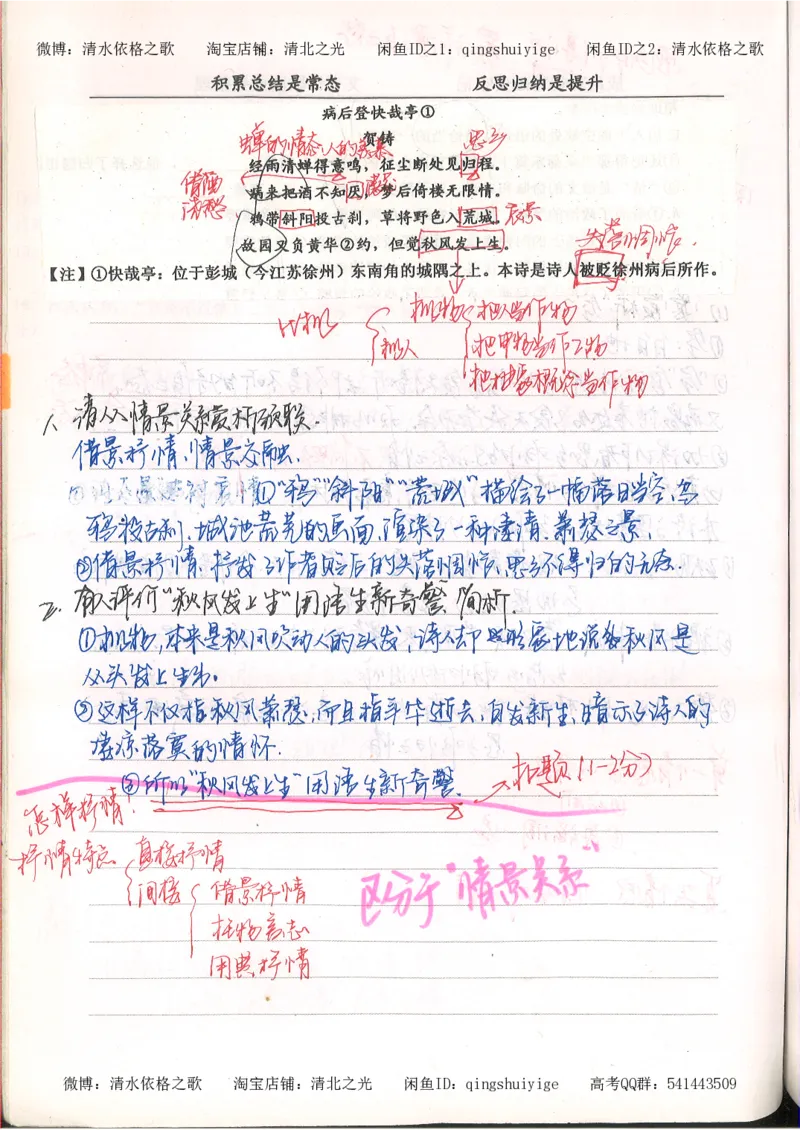 微博：清水依格之歌 淘宝店铺：清北之光 闲鱼ID之1：qingshuiyige 闲鱼ID之2：清水依格之歌
积累总结是常态 反思归纳是提升
病后登快哉亭①
贺铸
蝉的情态 人的 思乡
经雨清蝉得意鸣，征尘断处见归程。
借酒消愁
病来把酒不知厌，梦后倚楼无限情。
鸦带斜阳投古刹，草将野色入荒城。
故园又负黄华②约，但觉秋风发上生。
失落惆怅
【注】①快哉亭：位于彭城（今江苏徐州）东南角的城隅之上。本诗是诗人被贬徐州病后所作。
比拟
拟物
拟人
把人当作物
把甲物当作乙物
把抽象概念当作物
1、请从情景关系赏析颈联.
借景抒情，情景交融.
①"鸦""斜阳""荒城"描绘了一幅落日当空，乌
鸦投古刹，城池荒芜的画面，渲染了一种凄清、萧瑟之景，
②借景抒情，抒发了作者贬后的失落惆怅，思乡不得归的无奈.
2. 有人评价"秋风发上生"用语生新奇警，简析.
①拟物，本来是秋风吹动人的头发，诗人却形象地说秋风是
从头发上生出。
②这样不仅指秋风萧瑟，而且指年华逝去，白发新生，暗示了诗人的
凄凉落寞的情怀.
③所以"秋风发上生"用语生新奇警.
→扣题(1-2分)
怎样抒情！
抒情特点
直接抒情
间接
借景抒情
托物言志
用典抒情
区分于"情景关系"
微博：清水依格之歌 淘宝店铺：清北之光 闲鱼ID：qingshuiyige 高考QQ群：541443509